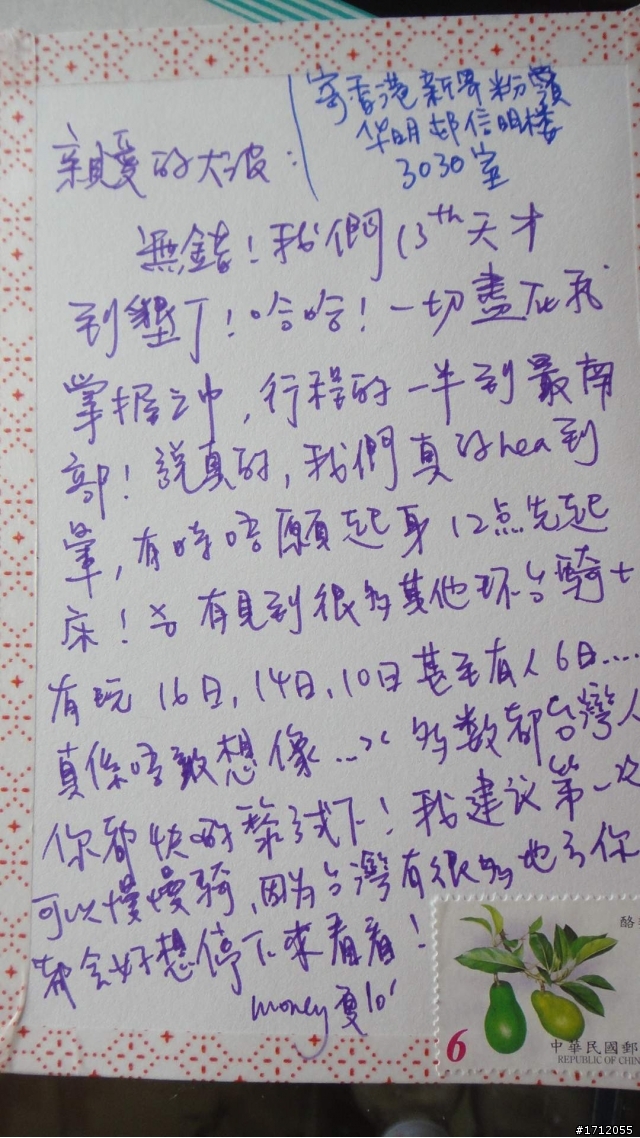 寄香港新界粉嶺
华明邨信明楼
3030室
親愛的大波：
無錯！我們13th天才
到墾丁！哈哈！一切盡在我
掌握之中，行程的一半到最南
部！說真的，我們真的hea到
暈，有時唔願起身12点先起
床！有見到很多其他环台騎士
有玩16日，14日，10日甚至有人6日.....
真係唔敢想像...多数都台灣人
你都快的黎試下！我建议第一次
可以慢慢骑，因为台灣有很多地方你
都会好想停下來看看！
money夏
酪
6
中華民國郵
REPUBLIC OF CHIN
#1712055